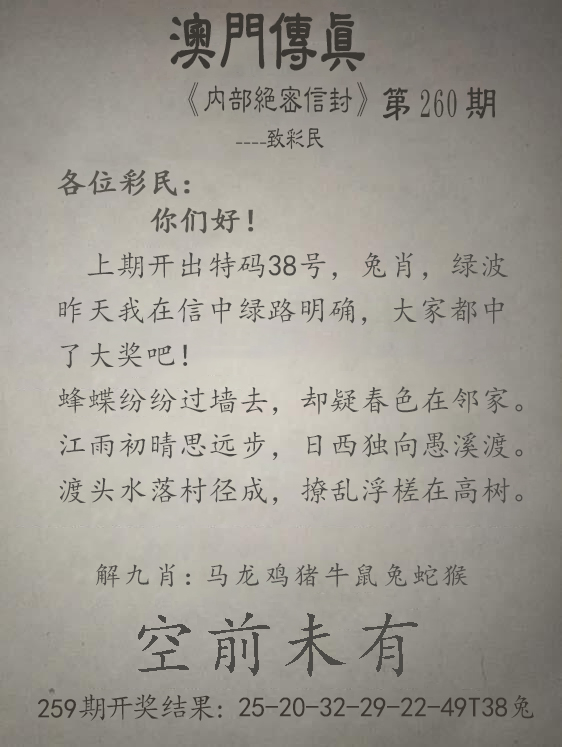 澳門傳真
《内部絕密信封》第260期
----致彩民
各位彩民：
你们好！
上期开出特码38号，兔肖，绿波
昨天我在信中绿路明确，大家都中
了大奖吧！
蜂蝶纷纷过墙去，却疑春色在邻家。
江雨初晴思远步，日西独向愚溪渡。
渡头水落村径成，撩乱浮槎在高树。
解九肖：马龙鸡猪牛鼠兔蛇猴
空前未有
259期开奖结果：25-20-32-29-22-49T38兔